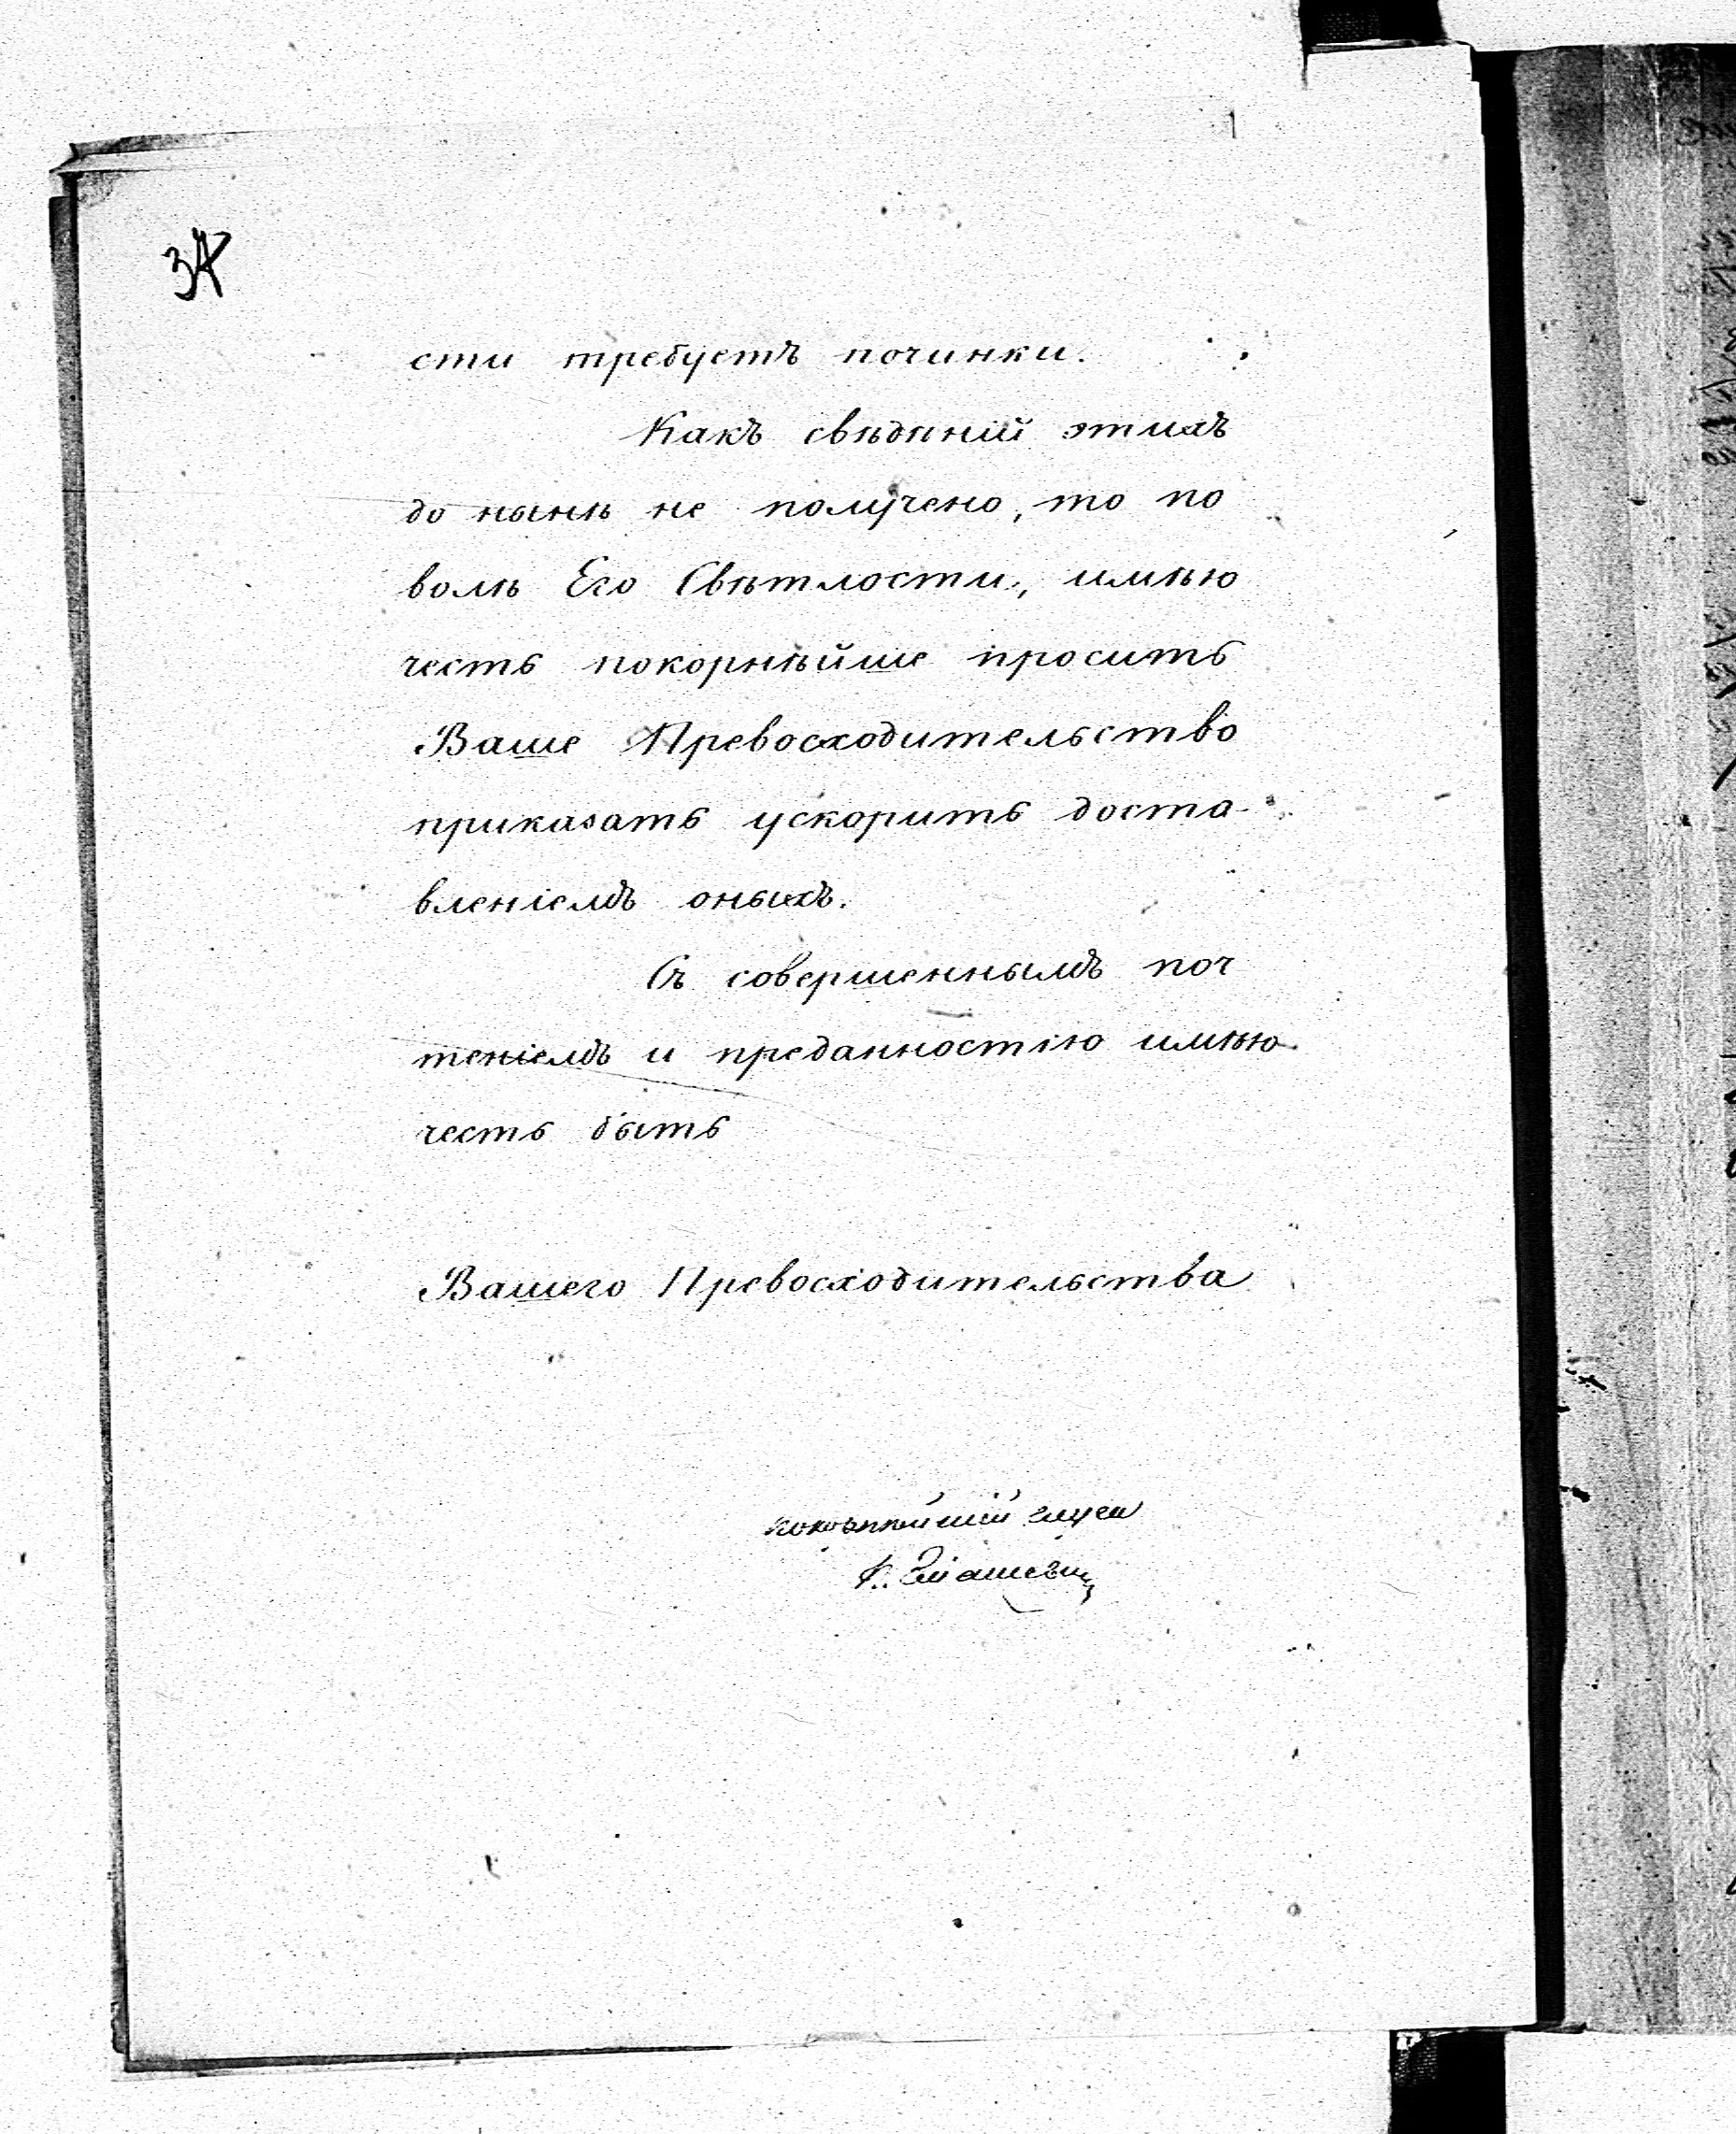 34
сти требуетъ починки.
Какъ свѣдѣній этихъ
до нынѣ не получено, то по
волѣ Его Свѣтлости, имѣю
честь покорнѣйше просить
Ваше Превосходительство
приказать ускорить доста-
вленіемъ оныхъ.
Съ совершеннымъ поч
теніемъ и преданностію имѣю
честь быть
Вашего Превосходительства
покорнѣйшій слуга